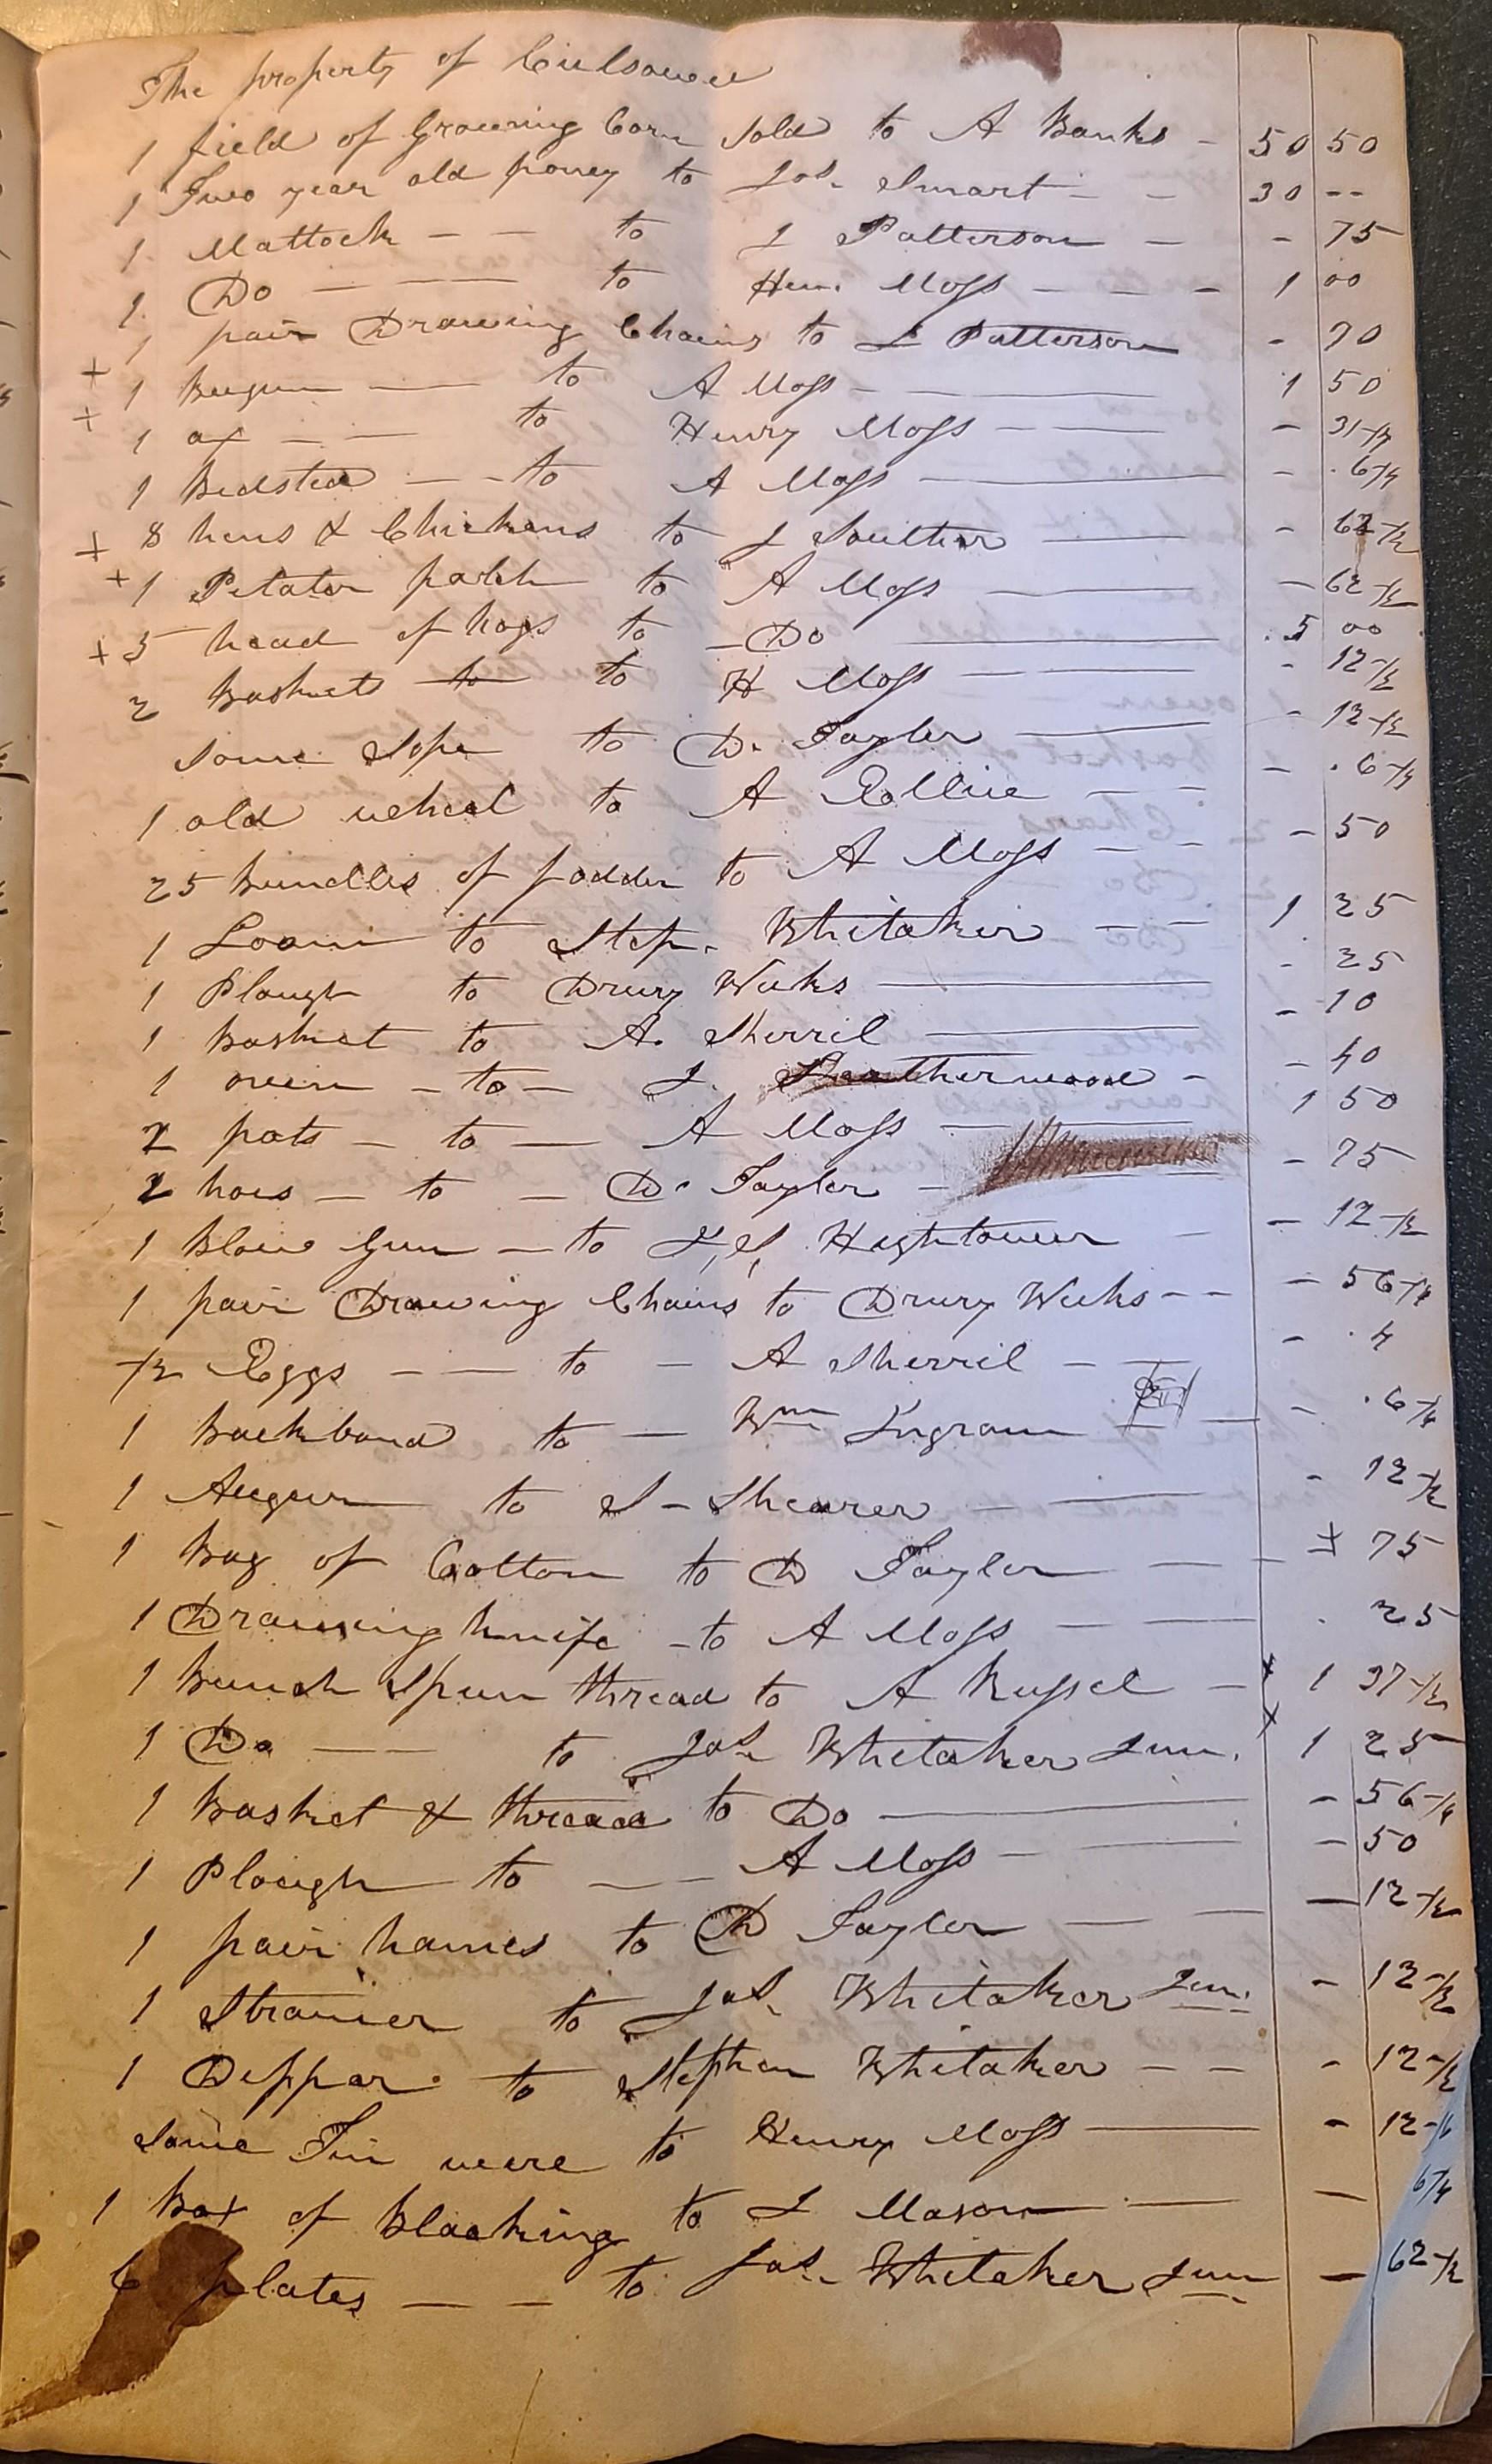 The property of Culsowee
1 field of Growing Corn sold to A Banks - 50 50
1 Two year old poney to Jas. Smart - - 30 --
1 Mattock - - to J Patterson - - 75
1 Do - - to Hen. Moss - - - 1 00
1 pair Drawing Chains to J Patterson - 70
+ 1 to A Moss - - 1 50
+ 1 ax - - to Henry Moss - - - 31 1/4
1 Bedsted - - to A Moss - - 6 1/4
+ 8 hens & Chickens to J Souther - - 62 1/2
+ 1 Petator patch to A Moss - - 62 1/2
+ 5 head of hogs to - Do - 5 00
2 Baskets to to H Moss - - 12 1/2
some Sope to D. Tayler - - 12 1/2
1 old wheal to A - - - 6 1/4
25 Bundles of fodder to A Moss - - - 50
1 Loom to Step. Whitaker - - 1 25
1 Plough to Drury Weeks - - 25
1 Basket to A. Sherril - - 10
1 oven - to - J. Leatherwood - - 40
2 pots - to - A Moss - - 1 50
2 hoes - to - D. Tayler - - 75
1 Blow Gun - to J, S, Hightower - - 12 1/2
1 pair Drawing Chains to Drury Weeks - - - 56 1/4
1/2 Eggs - - to - A Sherril - - - 4
1 Backband to - Wm Ingram - - 6 1/4
1 Augur to S - Shearer - - - 12 1/2
1 Bag of Cotton to D Tayler - - + 75
1 Drawing knife - to A Moss - - 25
1 Bunch Spun thread to A Russel - + 1 37 1/2
1 Do - - to Jas. Whitaker Jun. + 1 25
1 Basket & thread to Do - - 56 1/4
1 Plough to - - A Moss - - - 50
1 pair hames to D Tayler - - - 12 1/2
1 Strainer to Jas. Whitaker Jun. - 12 1/2
1 Deppar to Stephen Whitaker - - - 12 1/2
some Tin were to Henry Moss - - 12 1/2
1 Box of Blacking to J Mason - - 6 1/4
6 plates - - to Jas. Whitaker Jun - 62 1/2